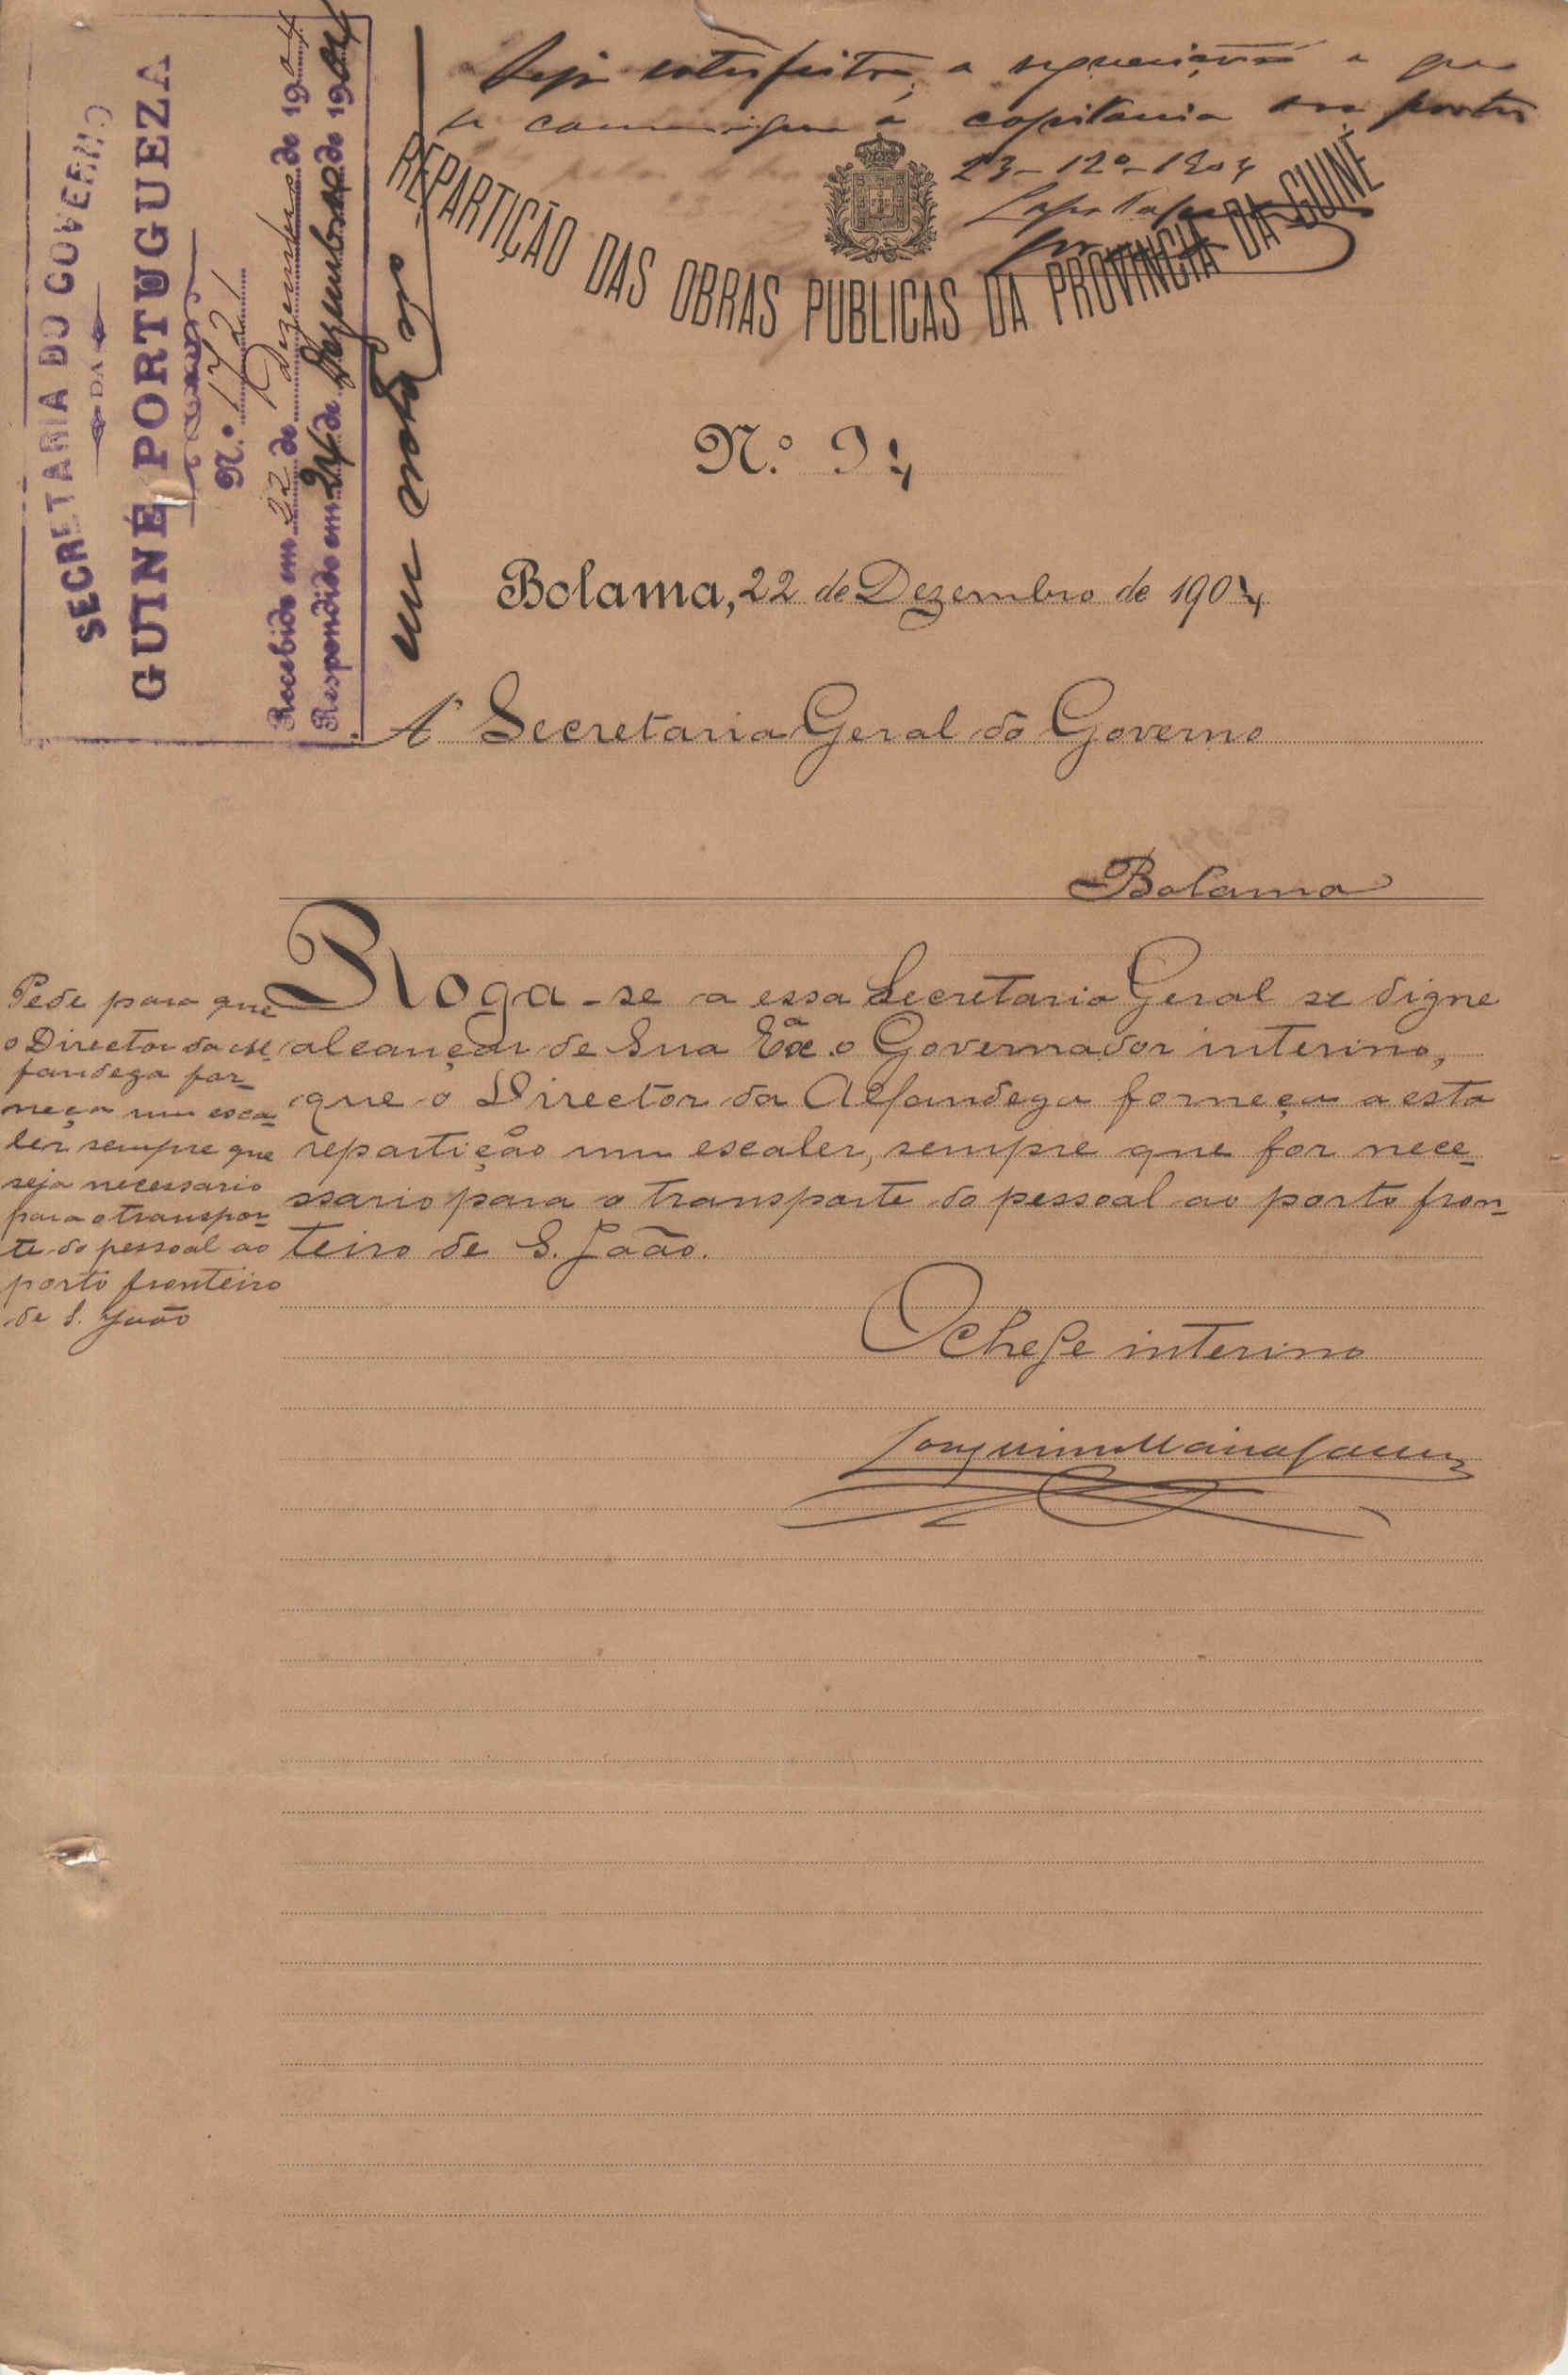 Seja satisfeita a requisição e que
se comunique á capitania dos portos
23-12º-1904
REPARTIÇÃO DAS OBRAS PUBLICAS DA PROVINCIA DA GUINÉ
SECRETARIA DO GOVERNO
DA
GUINÉ PORTUGUEZA
N.º 1721
Recebido em 22 de Dezembro de 1904
Respondido em 24 de Dezembro de 1904
em nota
N.º 94
Bolama, 22 de Dezembro de 1904
A' Secretaria Geral do Governo
Bolama
Pede para que
o Director da al-
fandega for-
neça um esca-
ler sempre que
seja necessario
para o transpor-
te do pessoal ao
porto fronteiro
de S. João
Roga-se a essa Secretaria Geral se digne
alcançar de Sua Exª o Governador interino,
que o Director da Alfandega forneça a esta
repartição um escaler, sempre que for nece-
ssario para o transporte do pessoal ao porto fron-
teiro de S. João.
O chefe interino
Joaquim Maria